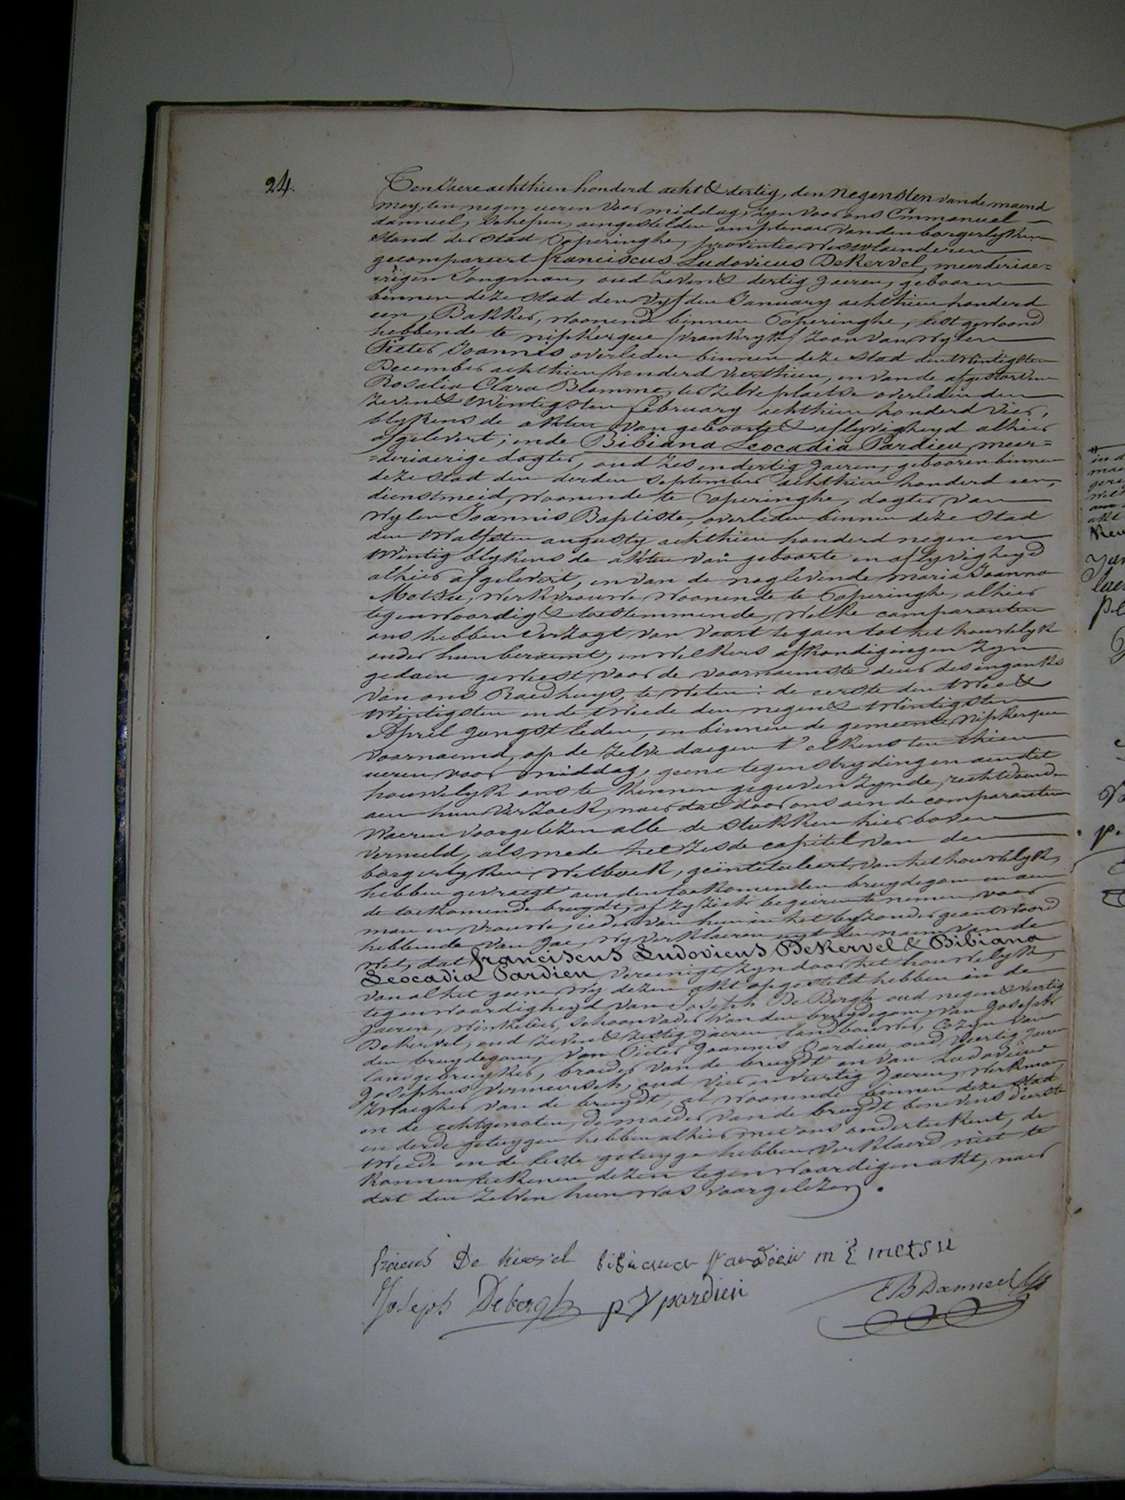 24.
Ten Jaere achthien honderd acht & dertig, den negensten van de maend
mey, ten negen ueren voor middag, zyn voor ons Emmanuel
danneel, schepen, aengestelden amptenaer van den borgerlyken
stand der stad Poperinghe, provintie Westvlaenderen
gecompareert franciscus Ludovicus DeKervel, meerderiae-
rigen Jongman, oud zeven & dertig Jaeren, geboren
binnen deze stad den vyfden January achthien honderd
een, Bakker, woonende binnen Poperinghe, lest gewoond
hebbende te nipkerque (vrankryk) zoon van wylen
Pieter Joannis overleden binnen deze stad den twintigsten
December achthien honderd veerthien, en van de afgestorven
Rosalia Clara Blomme, ter zelve plaetse overleden den
zeven & twintigsten february achthien honderd vier,
blykens de akten van geboorte & aflyvigheyd alhier
afgelevert, ende Bibiana Leocadia Pardieu, meer-
deriaerige dogter, oud zes en dertig Jaeren, gebooren binnen
deze stad den derden september achthien honderd een,
dienstmeid, woonende te Poperinghe, dogter van
wylen Joannis Baptiste, overleden binnen deze stad
den twalfsten augusty achthien honderd negen en
twintig blykens de akten van geboorte en aflyvigheyd
alhier afgelevert, en van de naglevende maria Joanna
Metsu, werkvrouwe woonende te Poperinghe, alhier
tegenwoordig & toestemmende, welke comparanten
ons hebben verzogt van voort te gaen tot het houwelyk
onder hun beraemt, en welkers afkondigingen zyn
gedaen geweest voor de voornaemste deure des ingangs
van ons Raedhuys, te weten: de eerste den twee &
twintigsten ende tweede den negen & twintigsten
April jongst leden, en binnen de gemeente nipkerque
voornaemd, op de zelve daegen t'elkens ten thien
ueren voor middag, geene tegenstrydingen aen dit
houwelyk ons te kennen gegeven zynde, rechtdoende
aen hun verzoek, naer dat door ons aen de comparanten
waeren voorgelezen alle de stukken hier boven
vermeld, als mede het zesde capitel van den
borgerlyken wetboek, geintituleert, van het houwelyk,
hebben gevraegt aen den toekomenden bruydegom en aen
de toekomende bruydt, of zy zich begeiren te nemen voor
man en vrouwe, ieder van hun in het byzonder geantwoord
hebbende van Jae, wy verklaeren uyt den naem van de
wet, dat franciscus Ludovicus DeKervel & Bibiana
Leocadia Pardieu vereenigt zyn door het houwelyk,
van al het geene wy dezen akt opgesteld hebben in de
tegenwoordigheyd van Joseph De Bergh oud negen & veertig
Jaeren, winkelier, schoonvader van den bruydegom, van Joseph
Dekervel, oud zeven & zestig Jaeren, landbouwer, Cozyn van
den bruydegom, van Pieter Joannis Pardieu, oud veertig Jaeren
landgebruyker, broeder van de bruydt en van Ludovicus
Josephus Vermeersch, oud vier en veertig Jaeren, werkman,
zwaegher van de bruydt, al woonende binnen deze stad
en de echtgenoten, de moeder van de bruydt benevens d'eerste
en derde getuygen hebben alhier met ons onderteekent, de
tweede en de leste getuyge hebben verklaerd niet te
konnen teekenen dezen tegenwoordigen akt, naer
dat den zelven hun was voorgelezen.
De kervel bibiana Pardieu m j metsu
Joseph Debergh p J pardieu E B Danneel